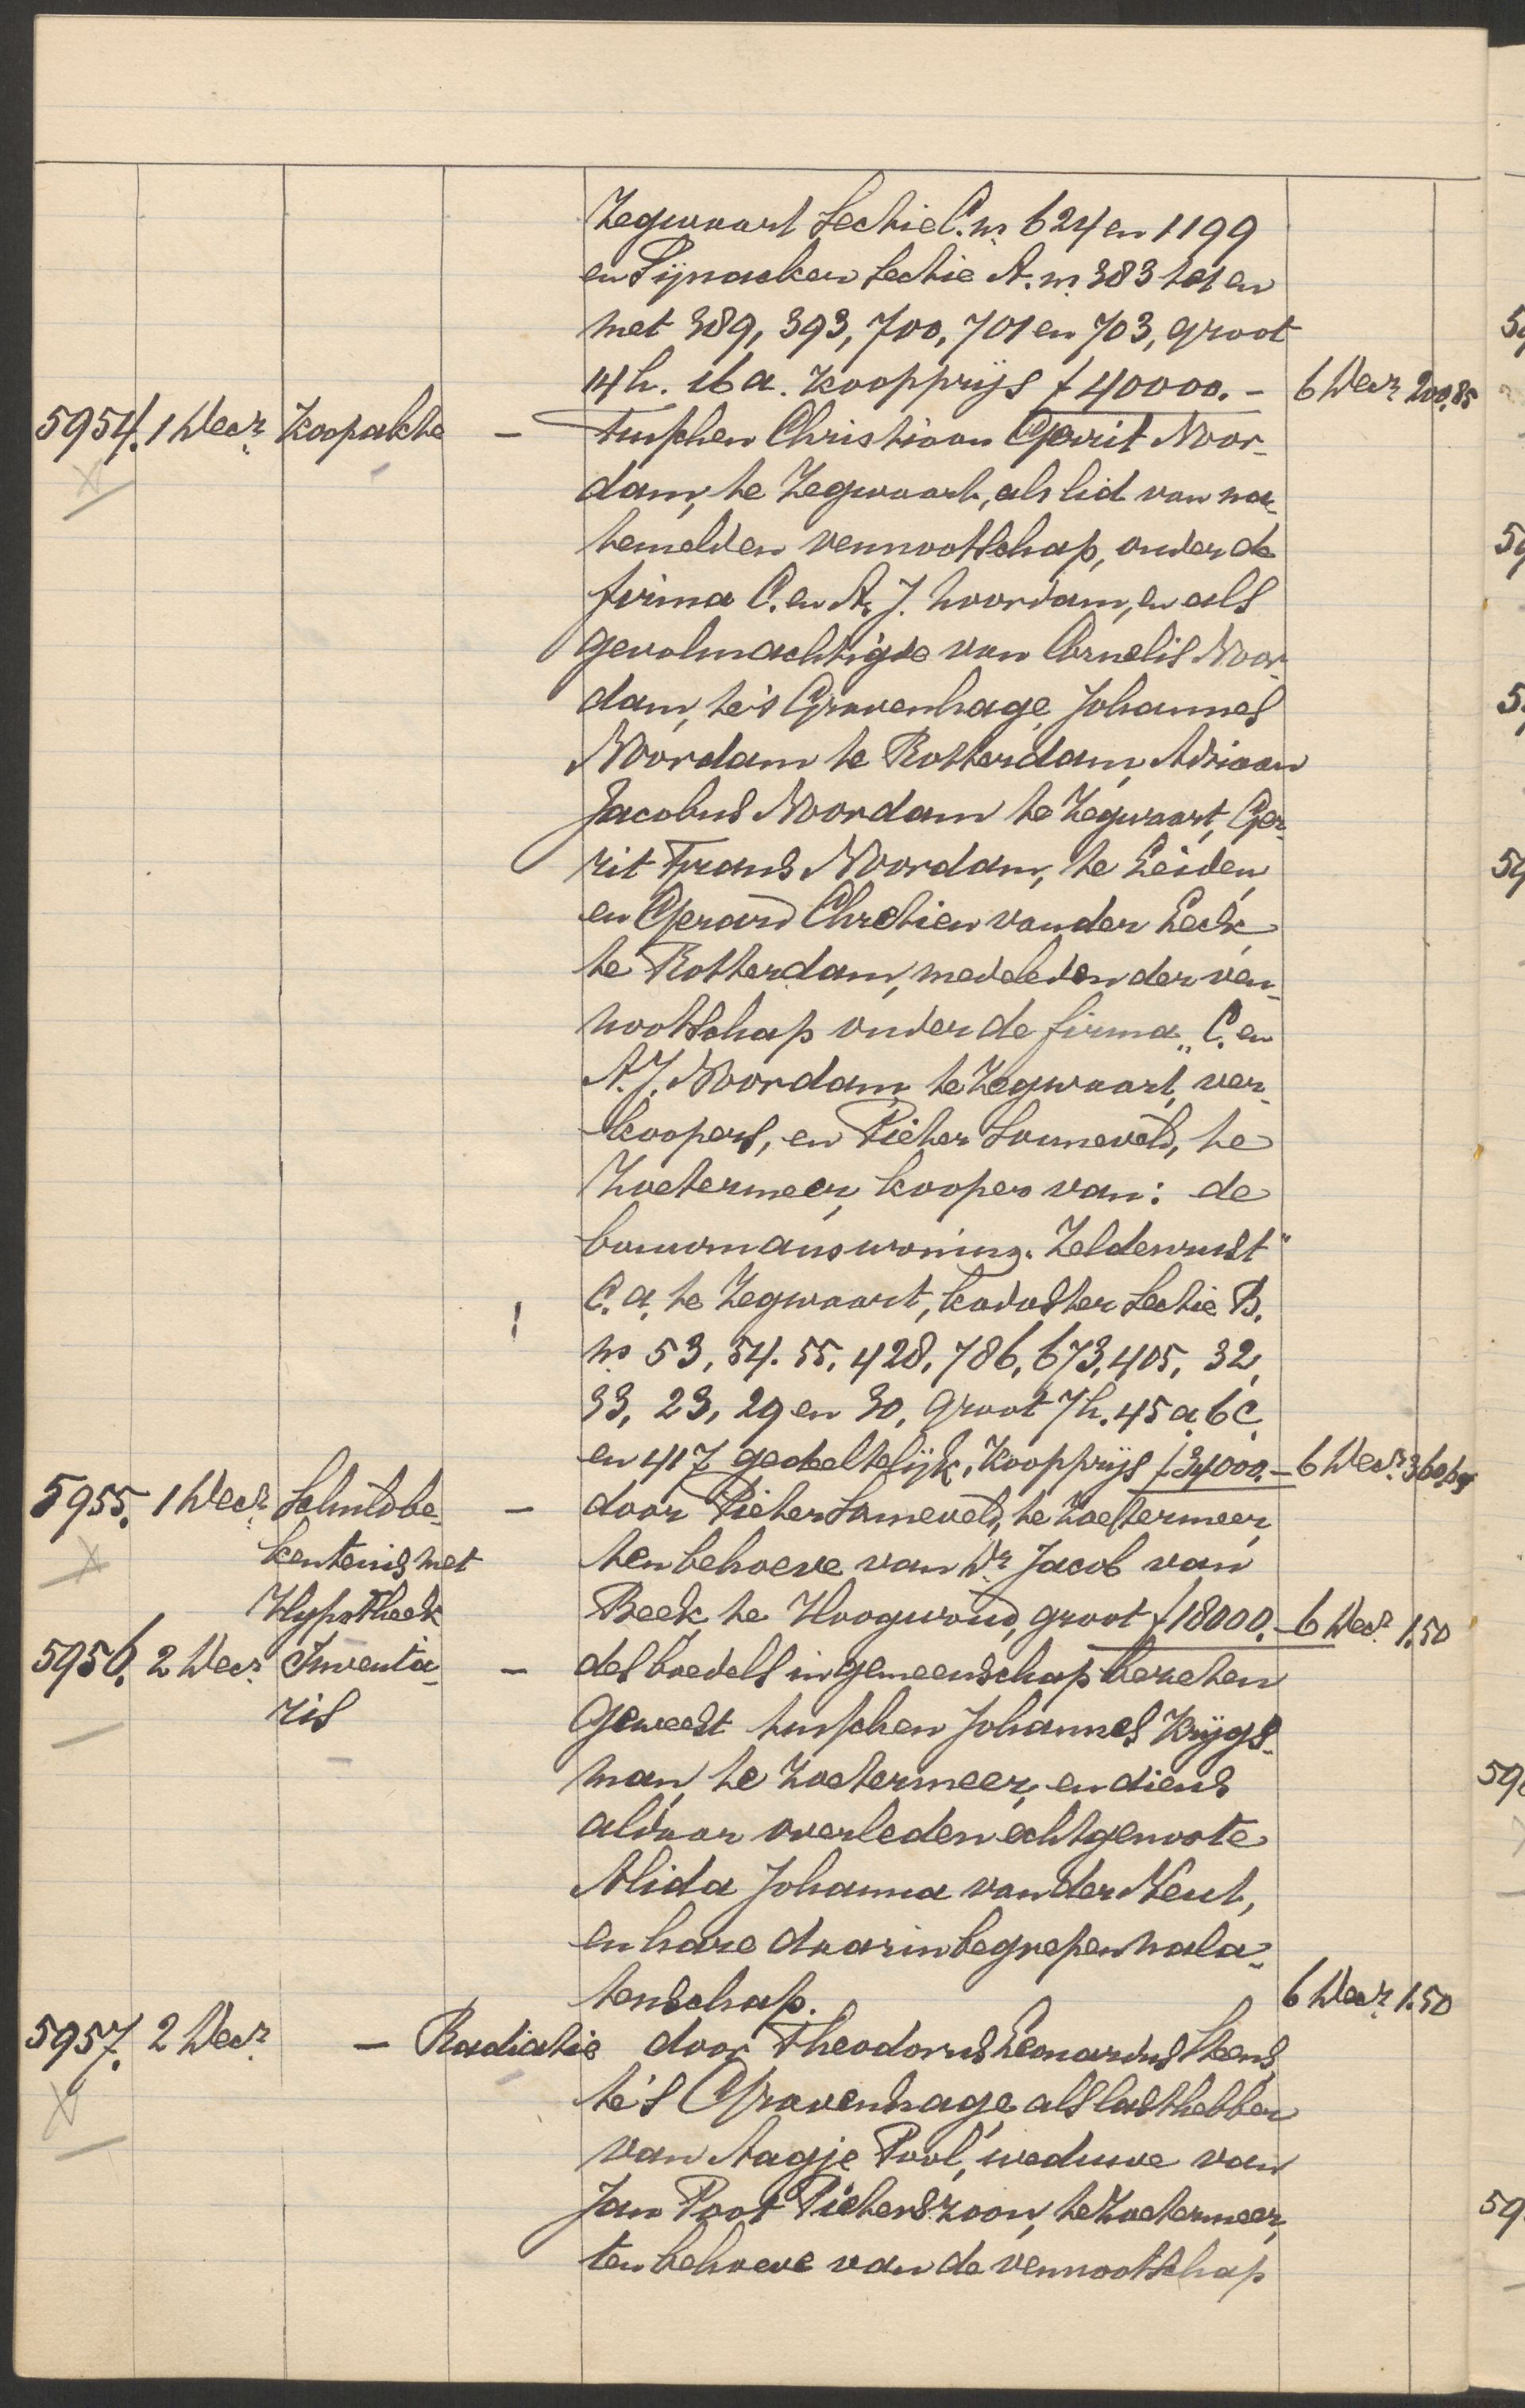 Zegwaart Sectie C. no. 624 en 1199
en Pijnacker Sectie A. no. 383 tot en
met 389, 393, 700, 701 en 703, groot
14 h. 16 a. Koopprijs f 40000.- 6 Decr. 200.85
5954. 1 Decr. Koopakte - Tusschen Christiaan Gerrit Noor-
dam, te Zegwaart, als lid van na-
temelden vennootschap, onder de
firma C. en A. J. Noordam, en als
gevolmachtigde van Cornelis Noor-
dam, te 's Gravenhage, Johannes
Noordam te Rotterdam, Adriaan
Jacobus Noordam te Zegwaart, Ger-
rit Frans Noordam, te Leiden,
en Gerard Chretien van der Leck,
te Rotterdam, medeleden der ven-
nootschap onder de firma „C. en
A. J. Noordam, te Zegwaart, ver-
koopers, en Pieter Sonneveld, te
Zoetermeer, kooper van: de
bouwmanswoning „Zeldenrust"
C. a. te Zegwaart, kadaster Sectie B.
no 53, 54. 55, 428, 786, 673, 405, 32,
33, 23, 29 en 30, groot 7 h. 45 a. 6 c.
en 417 gedeeltelijk, Koopprijs f 34000.- 6 Decr.
5955. 1 Decr. Schuldbe- - door Pieter Sonneveld, te Zoetermeer,
kentenis met ten behoeve van Dr. Jacob van
Hypotheek Beek, te Hoogwoud, groot f 18000.- 6 Decr. 1.50
5956. 2 Decr. Inventa- - des boedels in gemeenschap bezeten
ris geweest tusschen Johannes Krijgs-
man, te Zoetermeer, en diens
aldaar overleden echtgenoote
Alida Johanna van der Meul,
en hare daarin begrepen nala-
tenschap. 6 Decr. 1.50
5957. 2 Decr. - Radiatie door Theodorus Leonardus Stens,
te 's Gravenhage, als lasthebber
van Aagje Pool, weduwe van
Jan Poot Pieterszoon, te Zoetermeer,
ten behoeve van de vennootschap